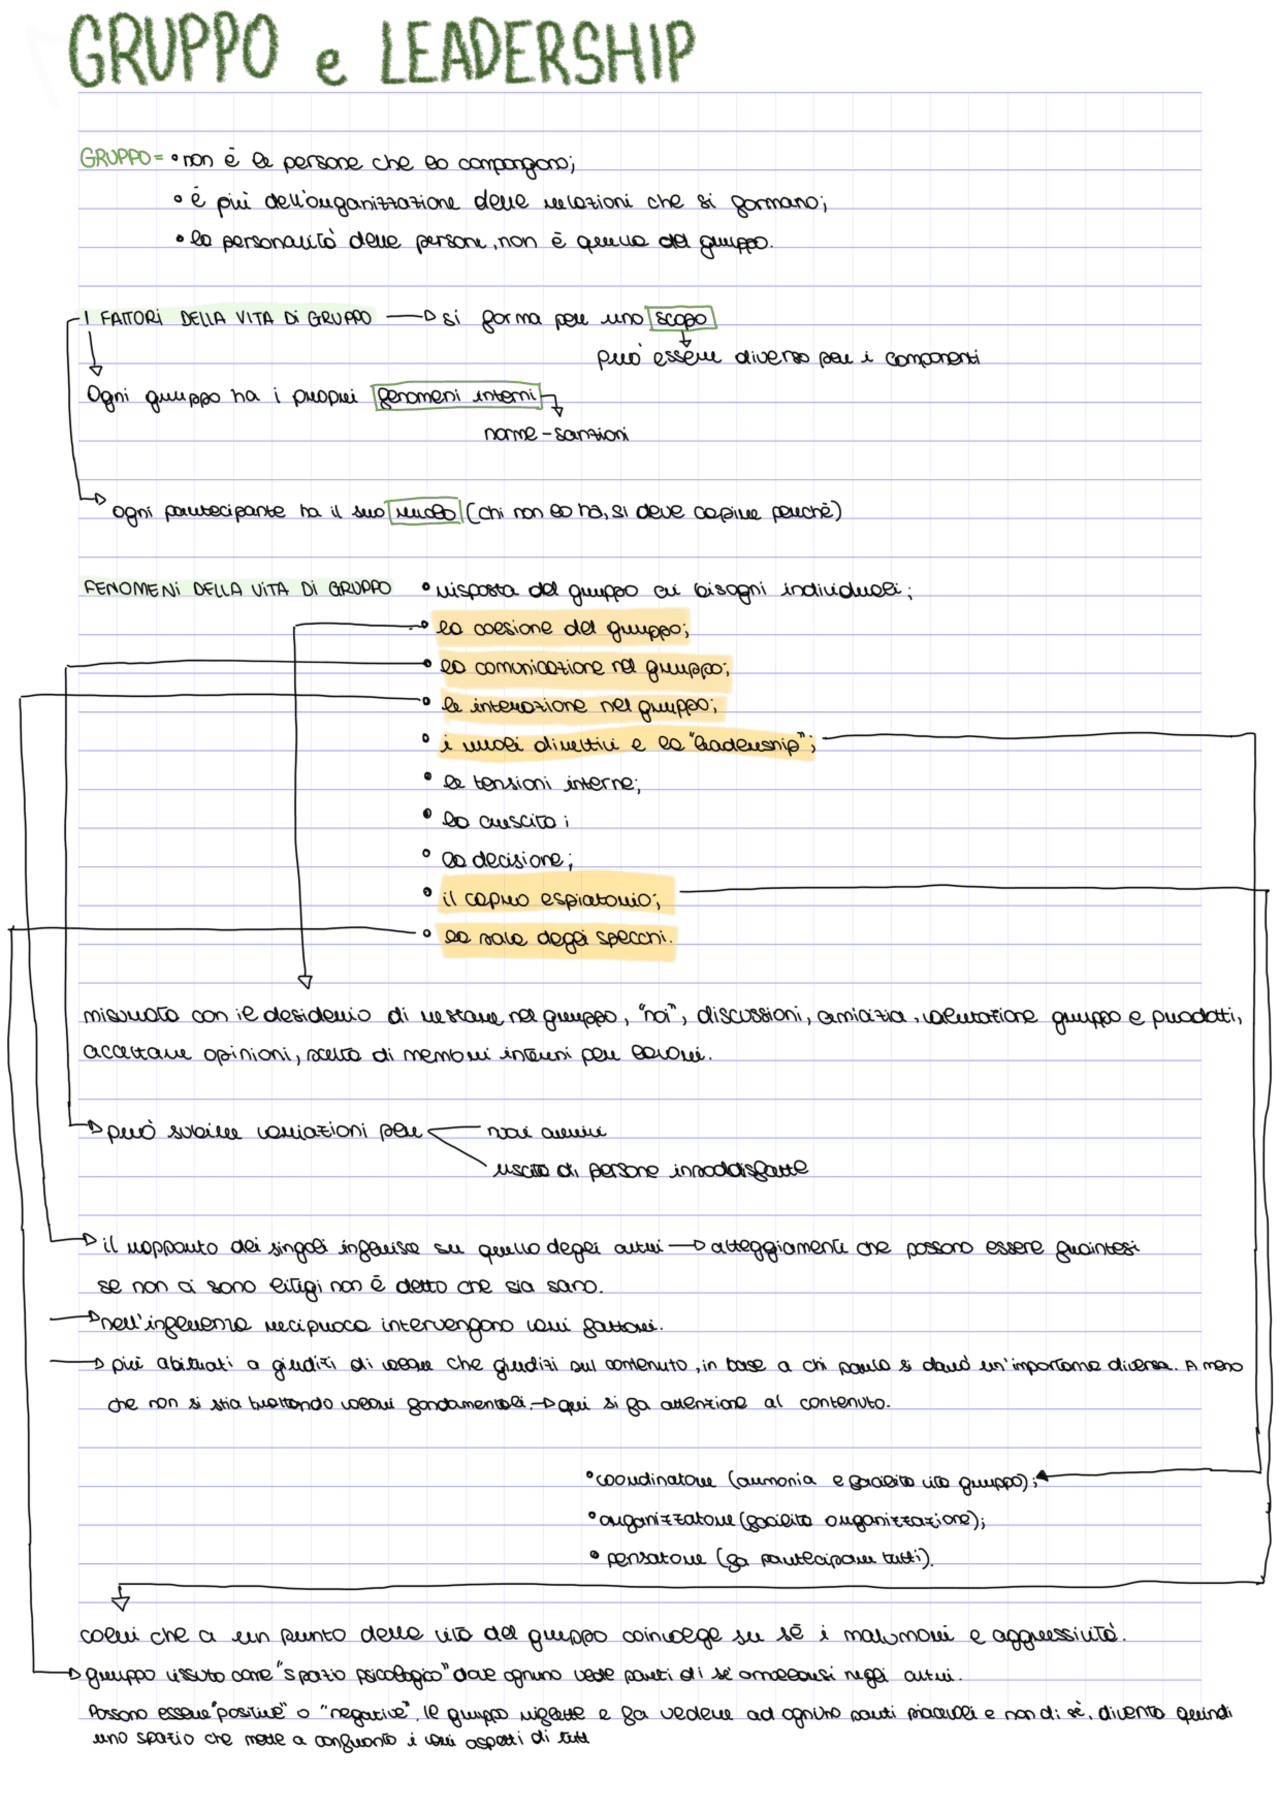 GRUPPO e LEADERSHIP
GRUPPO = • non è le persone che lo compongono;
• è più dell'organizzazione delle relazioni che si formano;
• la personalità delle persone, non è quella del gruppo.
I FATTORI DELLA VITA DI GRUPPO → si forma per uno scopo
può essere diverso per i componenti
Ogni gruppo ha i propri fenomeni interni
norme - sanzioni
ogni partecipante ha il suo ruolo (chi non lo ha, si deve capire perchè)
FENOMENI DELLA VITA DI GRUPPO • risposta del gruppo ai bisogni individuali;
• la coesione del gruppo;
• la comunicazione nel gruppo;
• le interazione nel gruppo;
• i ruoli direttivi e la "leadership";
• le tensioni interne;
• la crescita;
• la decisione;
• il capro espiatorio;
• la sala degli specchi.
misurata con il desiderio di restare nel gruppo, "noi", discussioni, amicizia, valutazione gruppo e prodotti,
accettare opinioni, scelta di membri interni per lavori.
→ può subire variazioni per nuovi arrivi
uscita di persone insoddisfatte
→ il rapporto dei singoli influisce su quello degli altri → atteggiamenti che possono essere fraintesi
se non ci sono litigi non è detto che sia sano.
→ nell'influenza reciproca intervengono vari fattori.
→ più abituati a giudizi di valore che giudizi sul contenuto, in base a chi parla si darà un'importanza diversa. A meno
che non si stia trattando valori fondamentali. → qui si fa attenzione al contenuto.
• coordinatore (armonia e facilita vita gruppo);
• organizzatore (facilita organizzazione);
• pensatore (fa partecipare tutti).
colui che a un punto della vita del gruppo coinvolge su sè i malumori e aggressività.
→ gruppo vissuto come "spazio psicologico" dove ognuno vede parti di se' negli altri.
Possono essere "positive" o "negative". Il gruppo riflette e fa vedere ad ognuno parti piacevoli e non di sè, diventa quindi
uno spazio che mette a confronto i vari aspetti di tutti